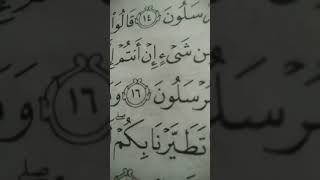 رْسَلُونَ ١٤ قَالُوا۟
مِن شَىْءٍ إِنْ أَنتُمْ
رْسَلُونَ ١٦ وَ
تَطَيَّرْنَا بِكُمْ